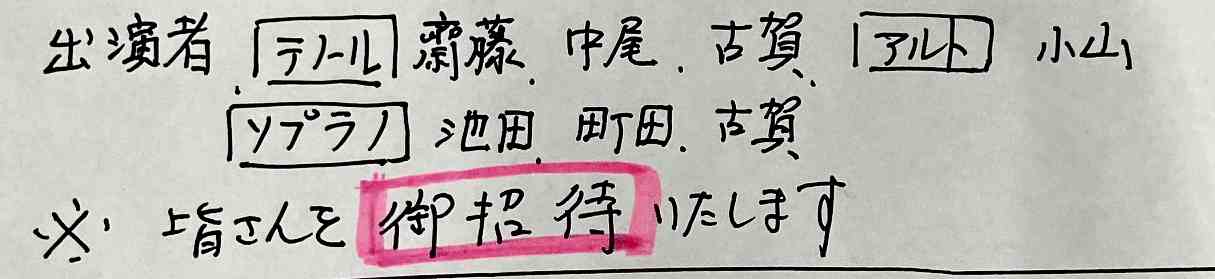 出演者 テノール 齋藤、中尾、古賀、アルト 小山
ソプラノ 池田、町田、古賀
※ 皆さんを御招待いたします